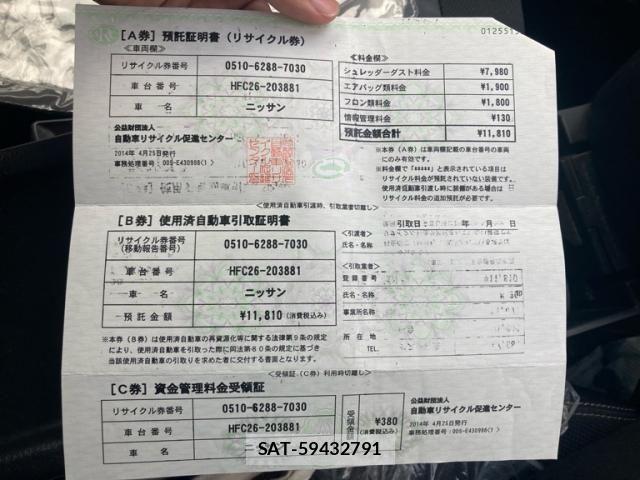 【A券】預託証明書（リサイクル券）
≪車両欄≫
リサイクル券番号 0510-6288-7030
車台番号 HFC26-203881
車名 ニッサン
公益財団法人
自動車リサイクル促進センター
2014年 4月25日発行
事務処理番号：00S-E430986(1 )
≪料金欄≫
シュレッダーダスト料金 ¥7,980
エアバッグ類料金 ¥1,900
フロン類料金 ¥1,800
情報管理料金 ¥130
預託金額合計 ¥11,810
※本券（A券）は車両欄記載の車台番号の車両
にのみ有効です。
※料金欄で「*****」と表示されている項目は
リサイクル料金が預託されていない装備です。
使用済自動車引渡し時に装備がある場合は
リサイクル料金の追加預託が必要です。
＜使用済自動車引渡時、引取業者切離し＞
【B券】使用済自動車引取証明書
リサイクル券番号
(移動報告番号) 0510-6288-7030
車台番号 HFC26-203881
車名 ニッサン
預託金額 ¥11,810（消費税込み）
※本券（B券）は使用済自動車の再資源化等に関する法律第9条の規定
により、使用済自動車を引取った際に同法第80条の規定に基づき
当該使用済自動車の引取りを求めた者に交付する書面となります。
引取日： 年 月 日
＜引渡者＞
氏名・名称
＜引取業者＞
登録番号
氏名・名称
事業所名称
所在地
TEL.
＜受領証（C券）利用時切離し＞
【C券】資金管理料金受領証
リサイクル券番号 0510-6288-7030
車台番号 HFC26-203881
車名
受領金額 ¥380
（消費税込み）
公益財団法人
自動車リサイクル促進センター
2014年 4月25日発行
事務処理番号：00S-E430986(1 )
SAT-59432791